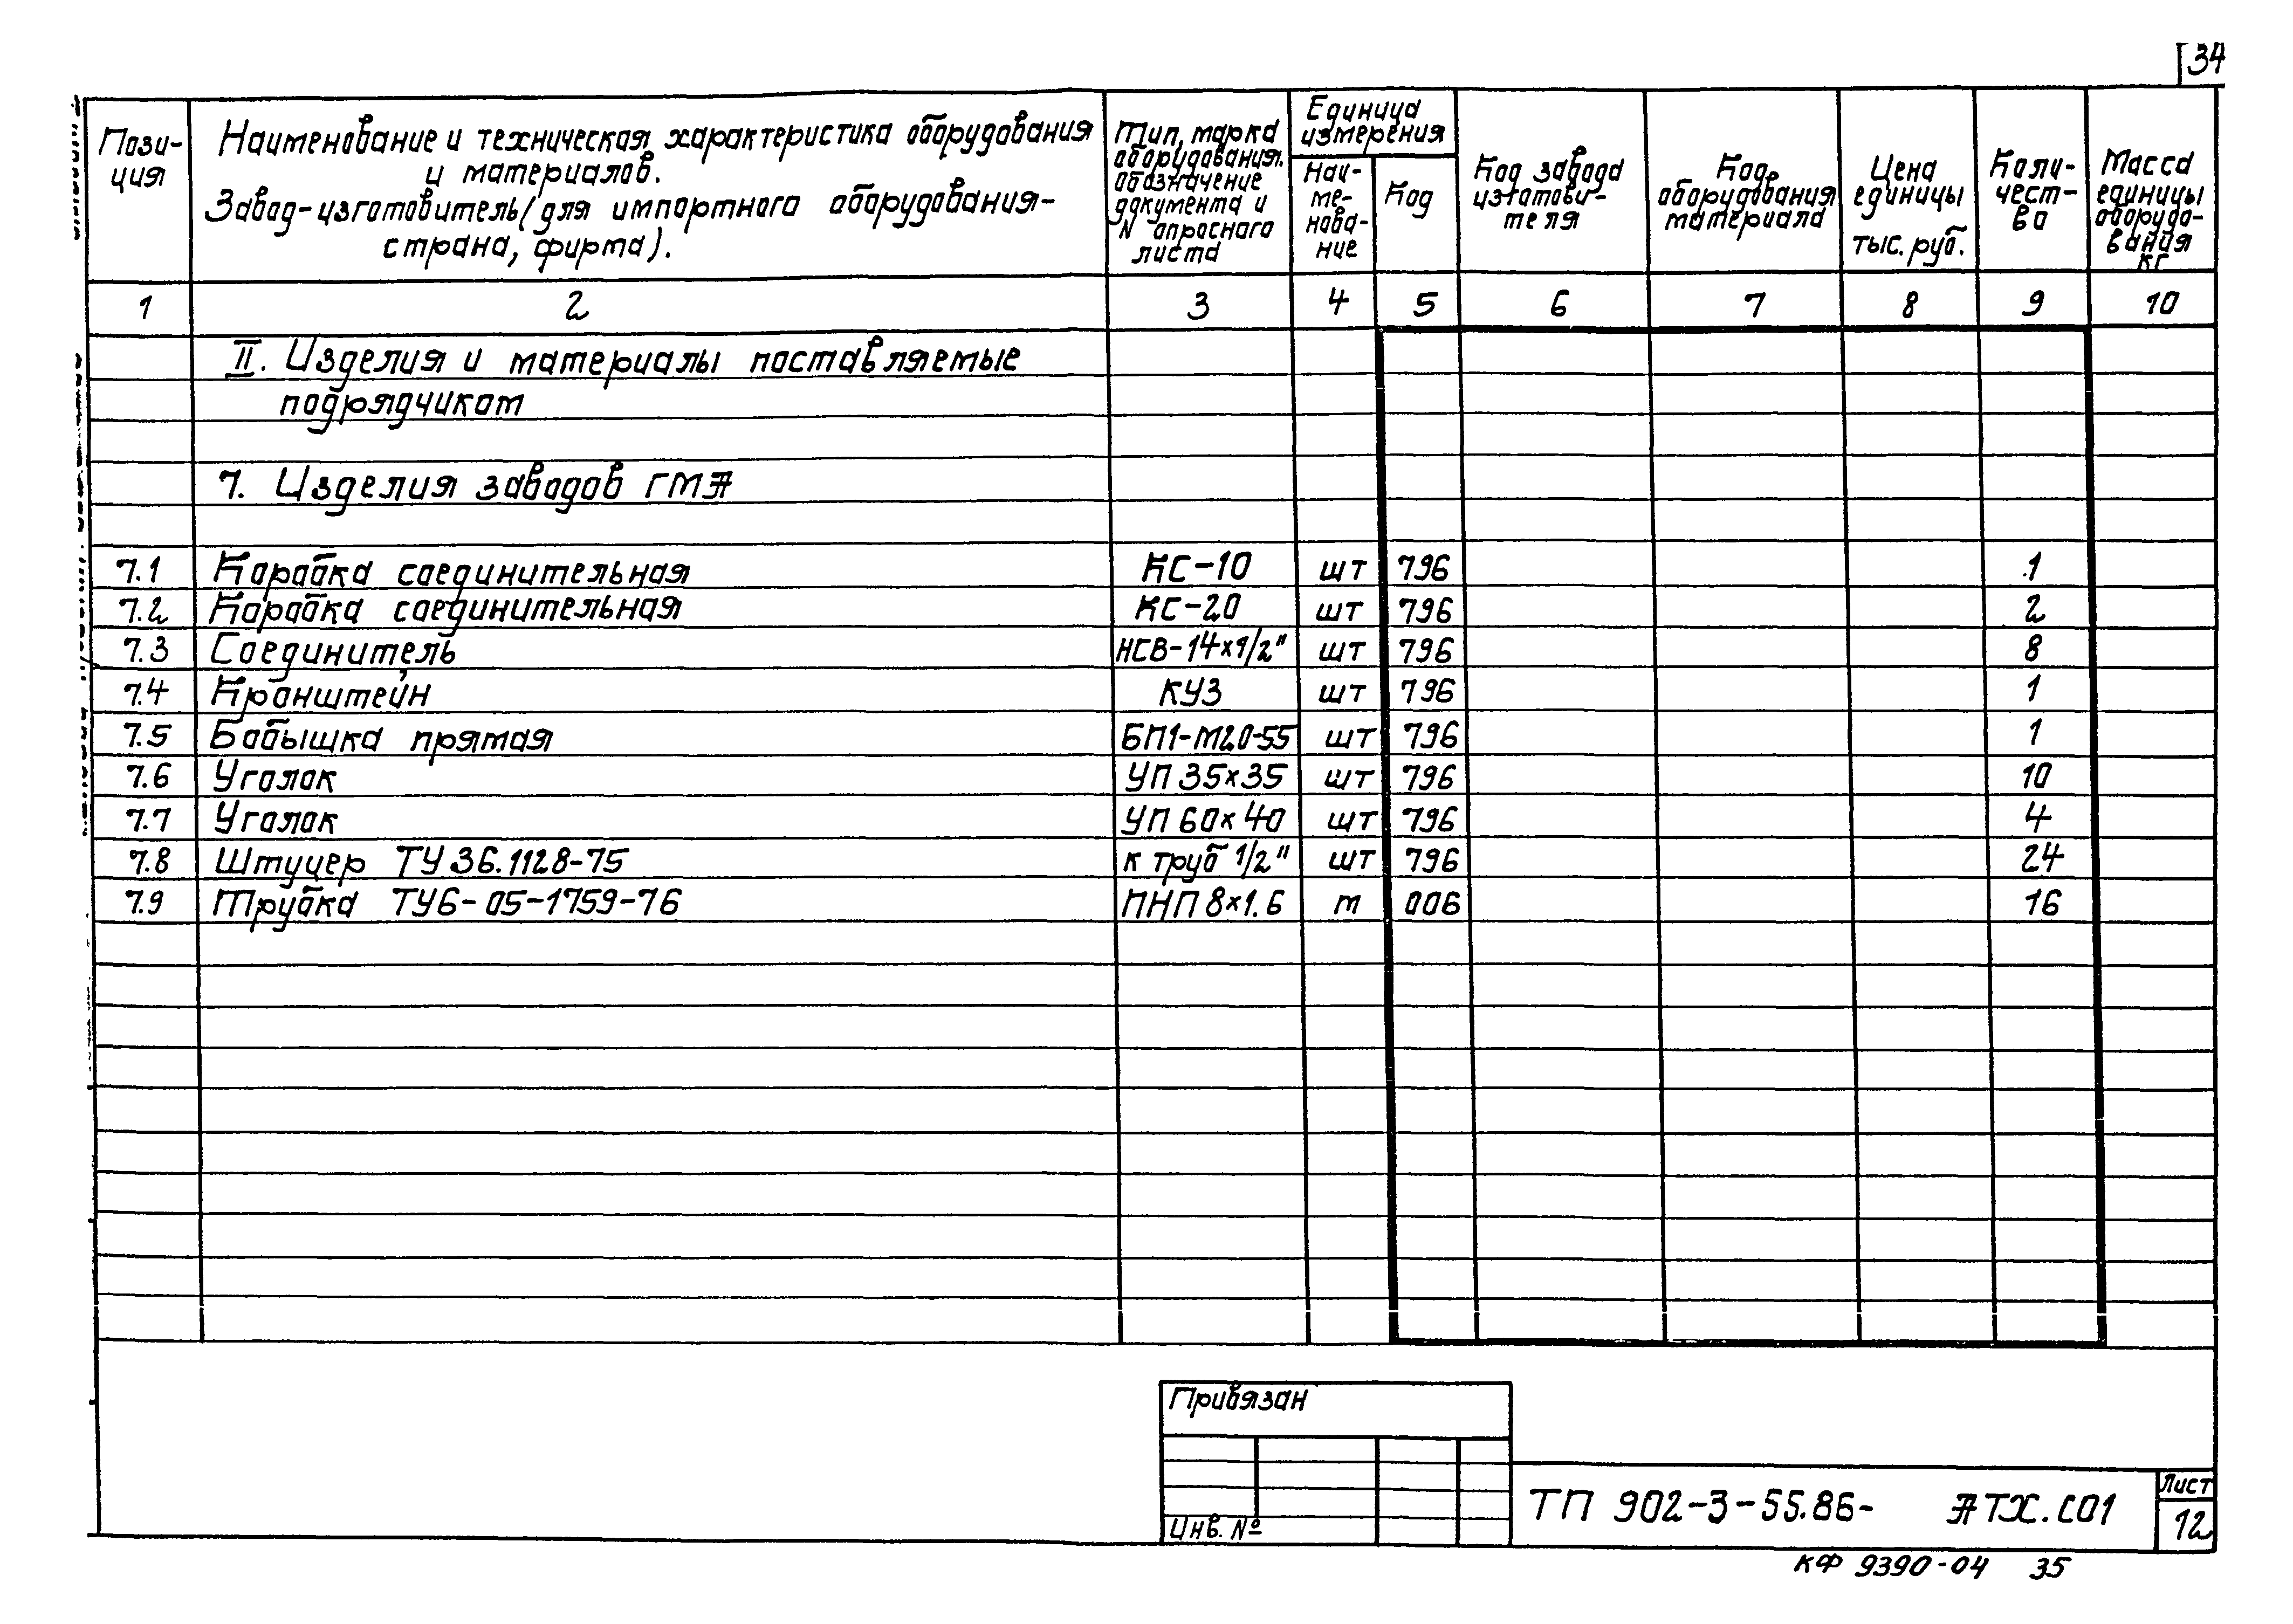 34
Пози-
ция
Наименование и техническая характеристика оборудования
и материалов.
Завод-изготовитель (для импортного оборудования-
страна, фирма).
Тип, марка
оборудования.
обозначение
документа и
N опросного
листа
Единица
измерения
Наи-
ме-
нова-
ние
Код
Код завода
изготови-
теля
Код
оборудования
материала
Цена
единицы
тыс. руб.
Коли-
чест-
во
Масса
единицы
оборудо-
вания
кг
1 2 3 4 5 6 7 8 9 10
II. Изделия и материалы поставляемые
подрядчиком
7. Изделия заводов ГМА
7.1 Коробка соединительная КС-10 шт 796 1
7.2 Коробка соединительная КС-20 шт 796 2
7.3 Соединитель НСВ-14х1/2" шт 796 8
7.4 Кронштейн КУ3 шт 796 1
7.5 Бобышка прямая БП1-М20-55 шт 796 1
7.6 Уголок УП 35х35 шт 796 10
7.7 Уголок УП 60х40 шт 796 4
7.8 Штуцер ТУ 36.1128-75 к труб 1/2" шт 796 24
7.9 Трубка ТУ6-05-1759-76 ПНП 8х1.6 м 006 16
Привязан
Инв. №
ТП 902-3-55.86- АТХ.СО1
Лист
12
КФ 9390-04 35